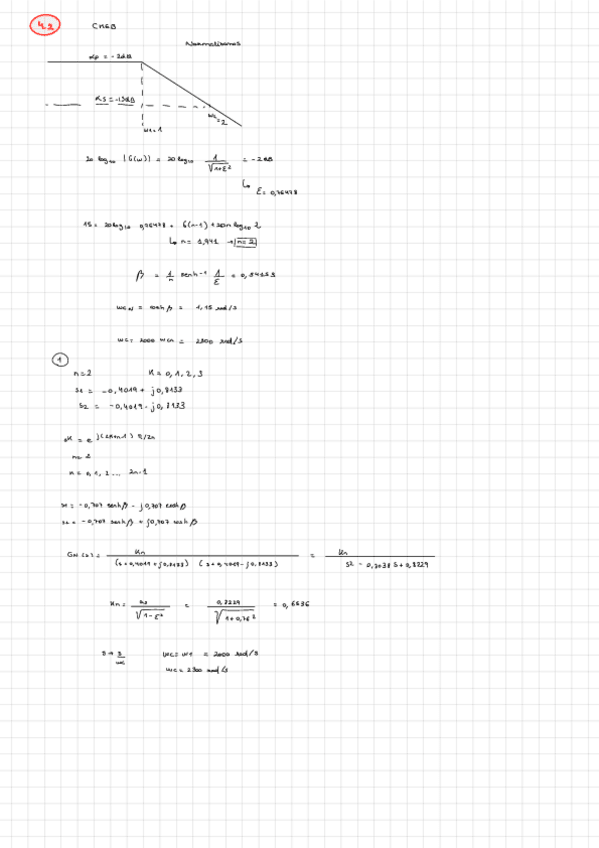 4.2 CHEB
Normalizamos
αp = -2dB
αs = -15dB
ws = 2
w1 = 1
20 log10 |G(w)| = 20 log10 1/√1+ε² = -2dB
ε = 0,76478
15 = 20log10 0,76478 + 6(n-1) + 20n log10 2
n = 1,941 → n=2
β = 1/n senh⁻¹ 1/ε = 0,54153
wcN = cosh β = 1,15 rad/s
wc = 2000 wcn = 2300 rad/s
1
n=2 K = 0, 1, 2, 3
s1 = -0,4019 + j0,8133
s2 = -0,4019 - j0,8133
n=2
K = 0, 1, 2 ... 2n-1
s1 = -0,707 senhβ - j0,707 coshβ
s2 = -0,707 senhβ + j0,707 coshβ
GN(s) = Kn/(s+0,4019+j0,8133) (s+0,4019-j0,8133) = Kn/s2 - 0,8038 s + 0,8229
Kn = /√1-ε² = 0,8229/√1+0,76² = 0,6536
s → s/wc wc = w1 = 2000 rad/s
wc = 2300 rad/s